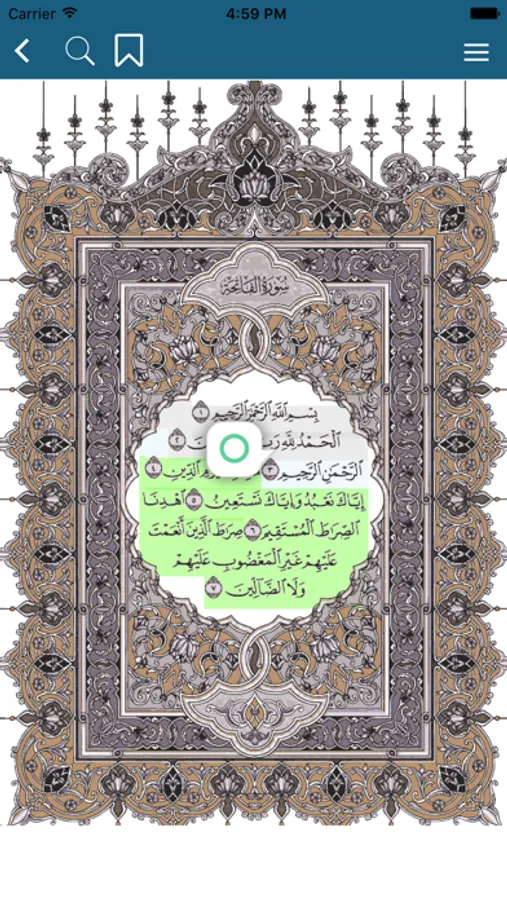 Carrier 4:59 PM
سُورَةُ الفَاتِحَةِ
بِسْمِ اللَّهِ الرَّحْمَٰنِ الرَّحِيمِ ١
الْحَمْدُ لِلَّهِ رَبِّ ٢
الرَّحْمَٰنِ الرَّحِيمِ ٣ الدِّينِ ٤
إِيَّاكَ نَعْبُدُ وَإِيَّاكَ نَسْتَعِينُ ٥ اهْدِنَا
الصِّرَاطَ الْمُسْتَقِيمَ ٦ صِرَاطَ الَّذِينَ أَنْعَمْتَ
عَلَيْهِمْ غَيْرِ الْمَغْضُوبِ عَلَيْهِمْ
وَلَا الضَّالِّينَ ٧